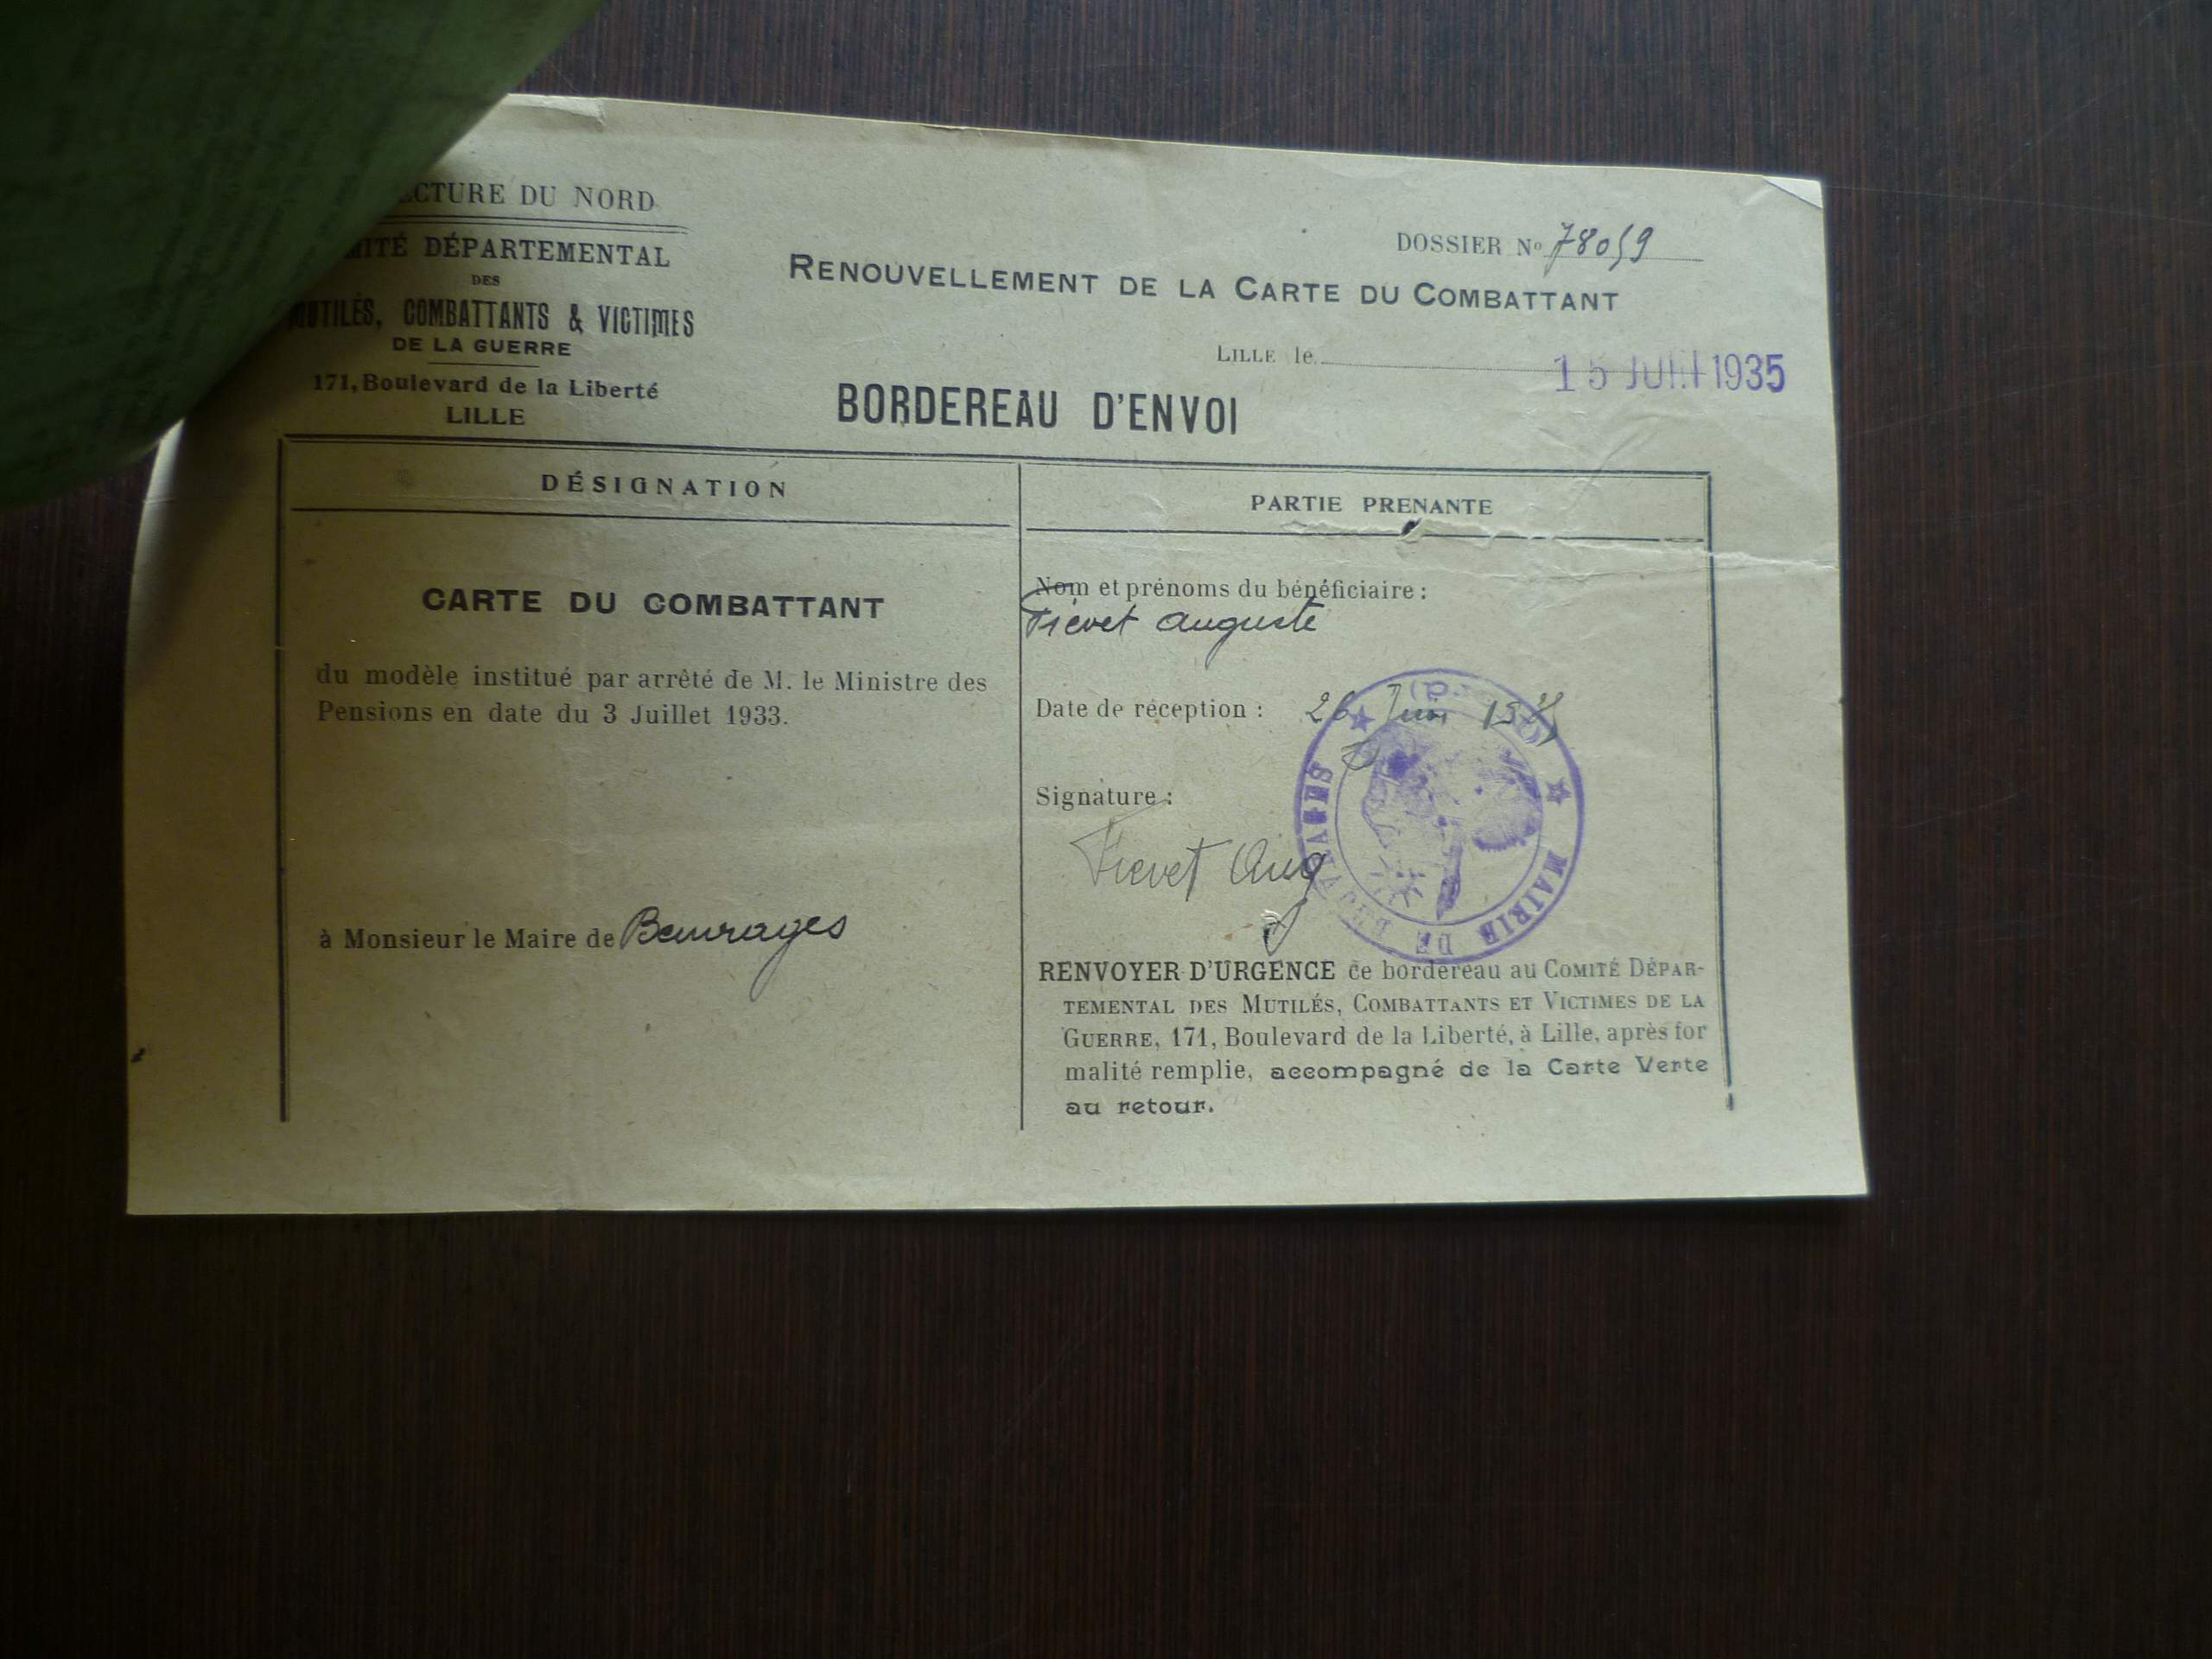 ECTURE DU NORD
MITÉ DÉPARTEMENTAL
DES
MUTILÉS, COMBATTANTS & VICTIMES
DE LA GUERRE
171, Boulevard de la Liberté
LILLE
DOSSIER No 78059
RENOUVELLEMENT DE LA CARTE DU COMBATTANT
LILLE le 15 JUIN 1935
BORDEREAU D'ENVOI
DÉSIGNATION
CARTE DU COMBATTANT
du modèle institué par arrêté de M. le Ministre des
Pensions en date du 3 Juillet 1933.
à Monsieur le Maire de Beuvrages
PARTIE PRENANTE
Nom et prénoms du bénéficiaire :
Fievet Auguste
Date de réception : 26 Juin 1935
Signature :
Fievet Aug
MAIRIE DE BEUVRAGES
RENVOYER D'URGENCE ce bordereau au COMITÉ DÉPAR-
TEMENTAL DES MUTILÉS, COMBATTANTS ET VICTIMES DE LA
GUERRE, 171, Boulevard de la Liberté, à Lille, après for
malité remplie, accompagné de la Carte Verte
au retour.